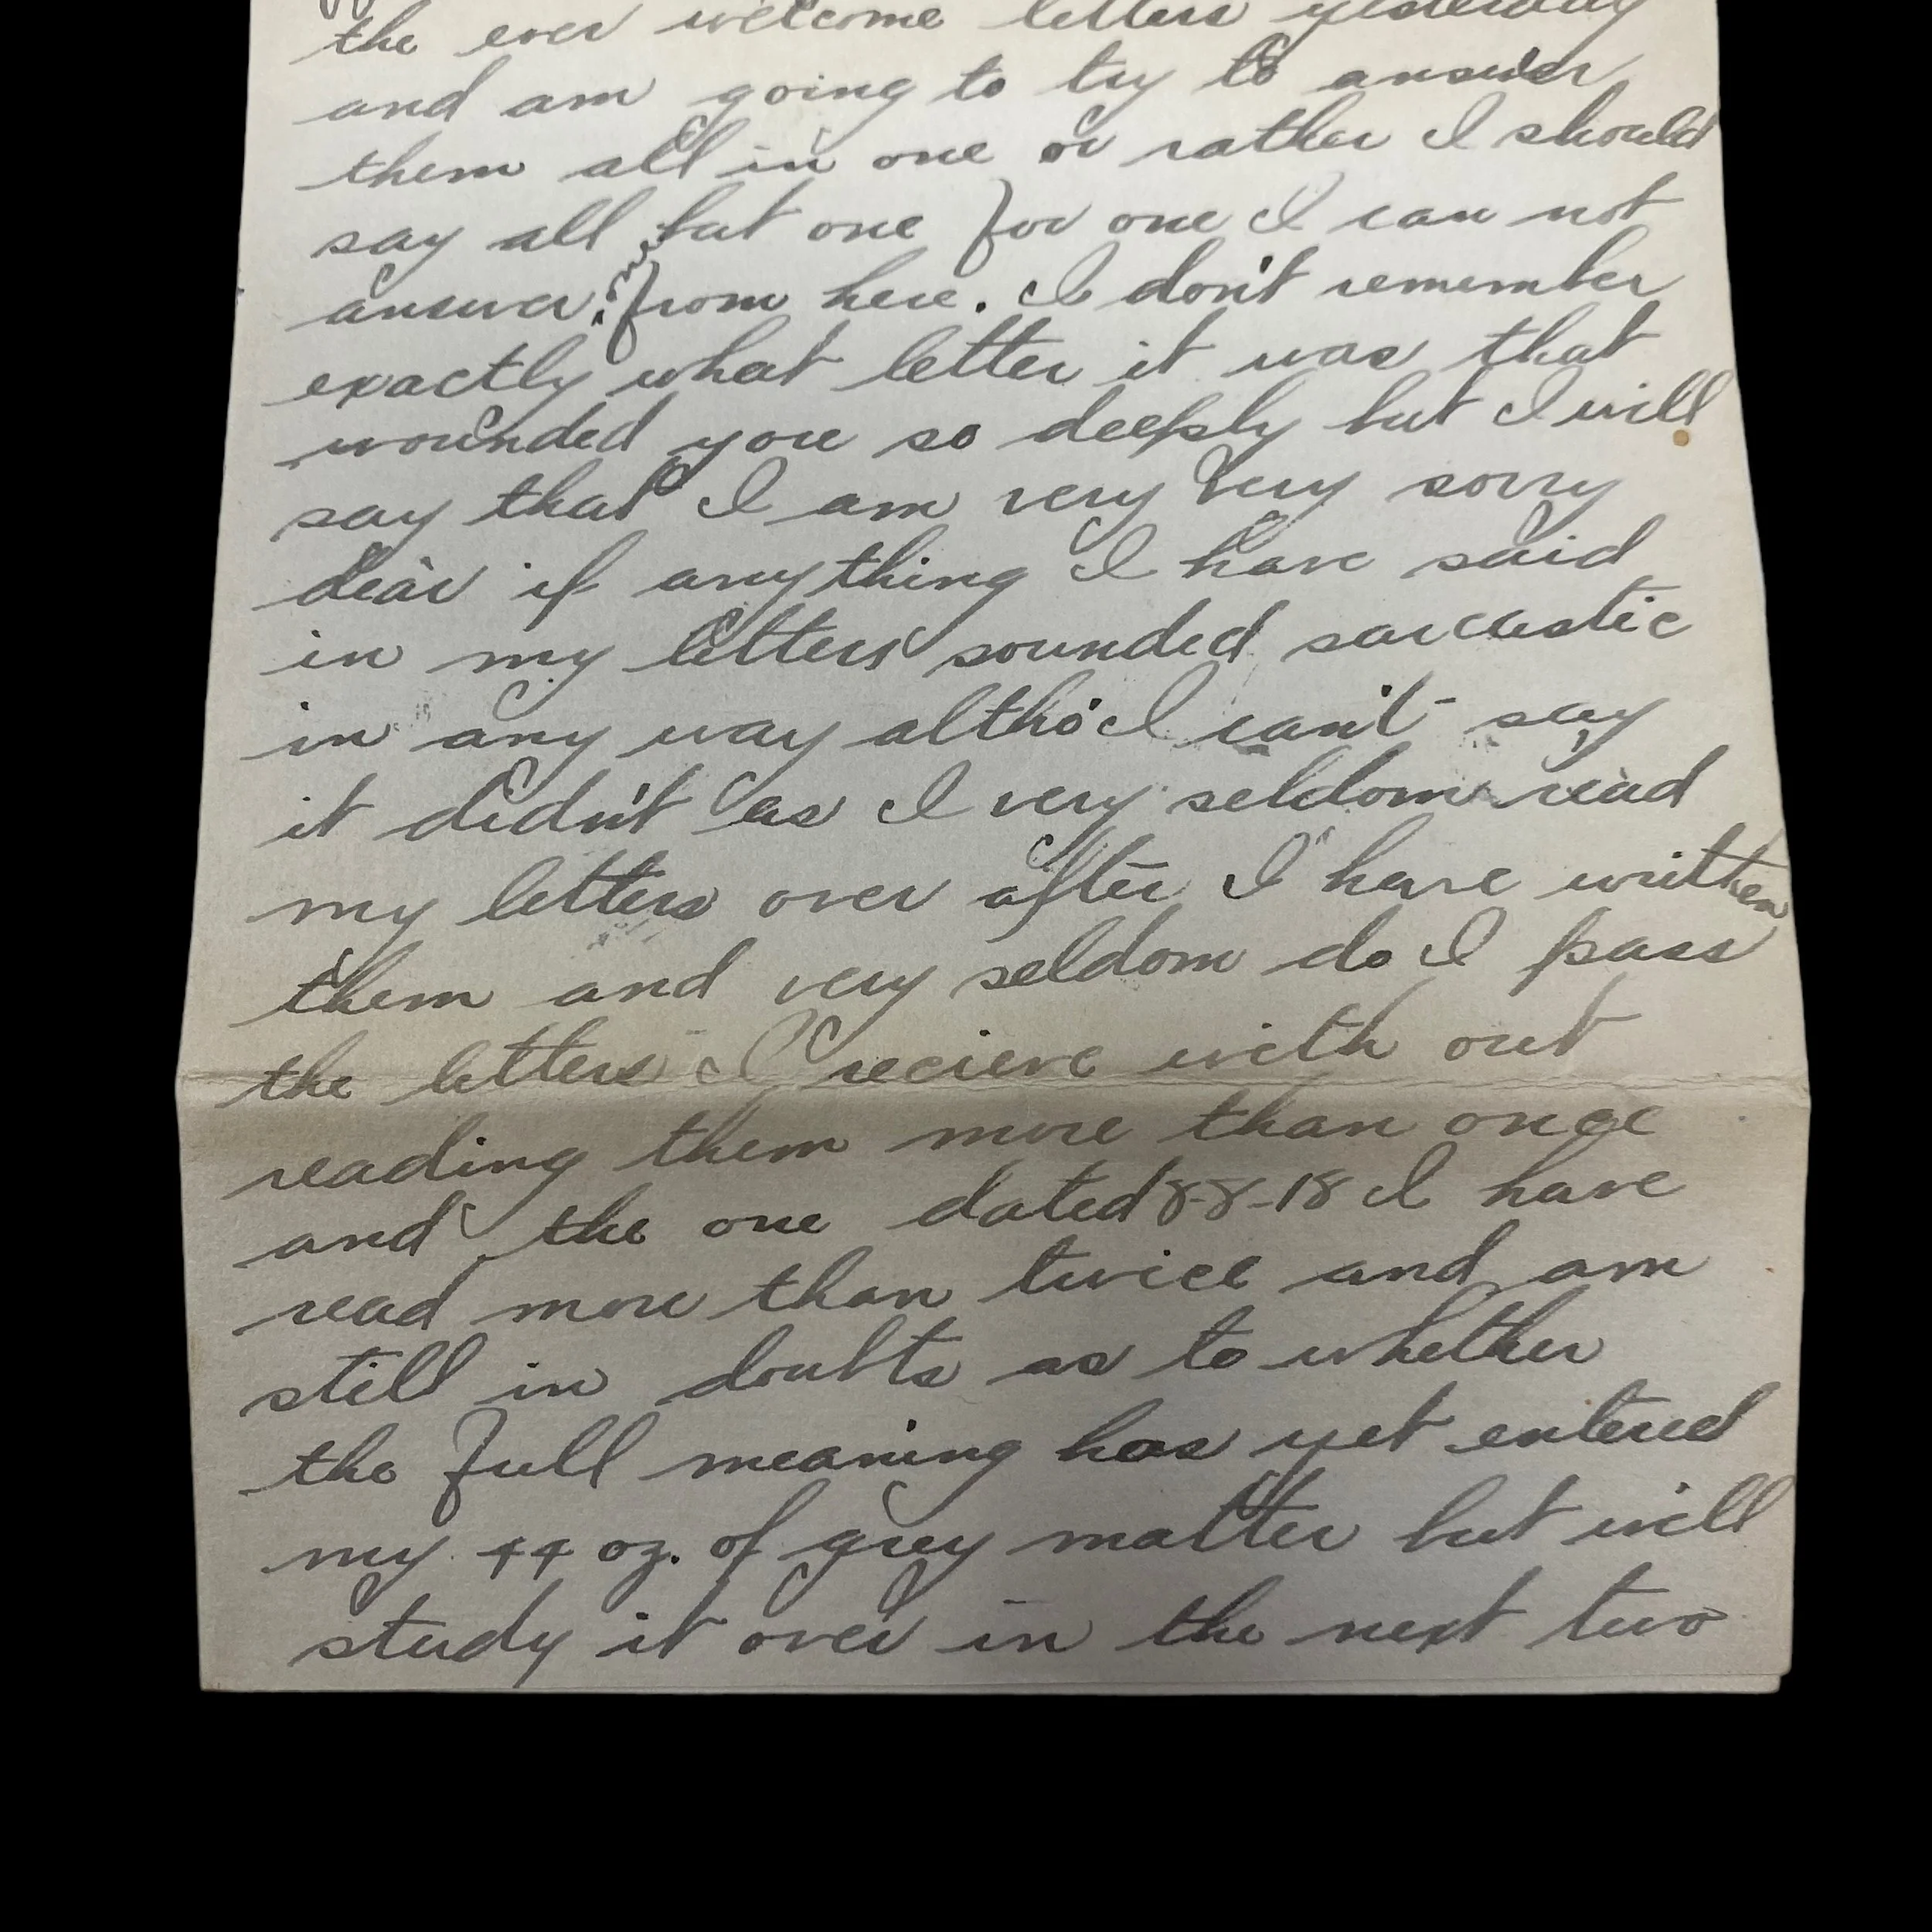 the ever welcome letters yesterday
and am going to try to answer
them all in one or rather I should
say all but one for one I can not
answer from here. I don't remember
exactly what letter it was that
wounded you so deeply but I will
say that I am very very sorry
dear if anything I have said
in my letters sounded sarcastic
in any way altho' I can't say
it didn't as I very seldom read
my letters over after I have written
them and very seldom do I pass
the letters I recieve with out
reading them more than once
and the one dated 8-8-18 I have
read more than twice and am
still in doubts as to whether
the full meaning has yet entered
my 44 oz. of grey matter but will
study it over in the next two